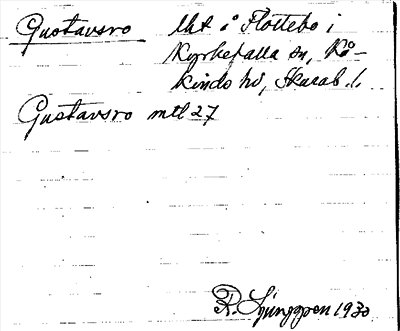 Gustavsro Ut å Flottebo i
Kyrkefalla sn, Kå-
kinds hd, Skarab. l.
Gustavsro mtl 27
R. Ljunggren 1930